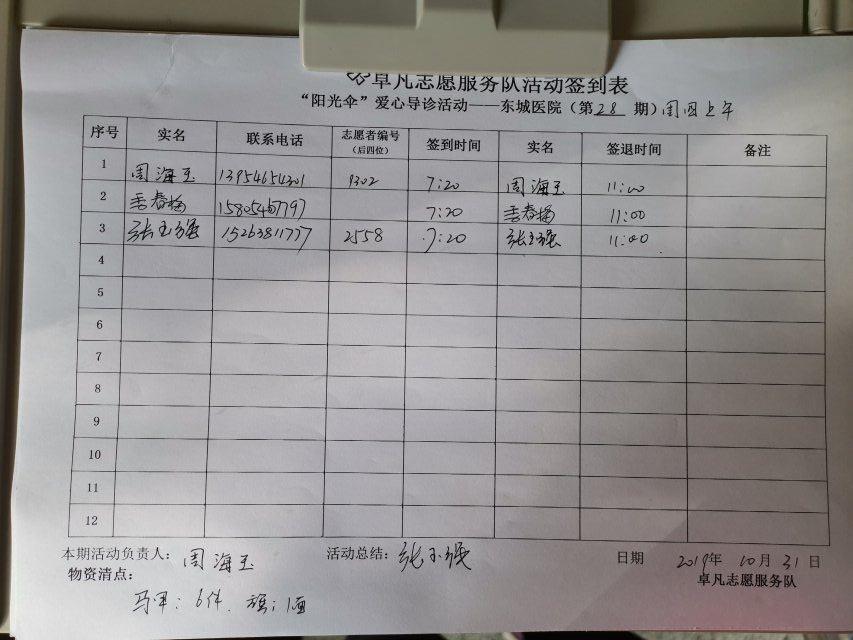 卓凡志愿服务队活动签到表
“阳光伞”爱心导诊活动——东城医院（第28期）周四上午
序号 实名 联系电话 志愿者编号（后四位） 签到时间 实名 签退时间 备注
1 周海玉 13954654301 9302 7:20 周海玉 11:00
2 季春梅 15805467797 7:20 季春梅 11:00
3 张玉强 15263811777 2558 7:20 张玉强 11:00
4
5
6
7
8
9
10
11
12
本期活动负责人：周海玉 活动总结：张玉强 日期 2019年10月31日
物资清点： 卓凡志愿服务队
马甲：6件、旗：1面